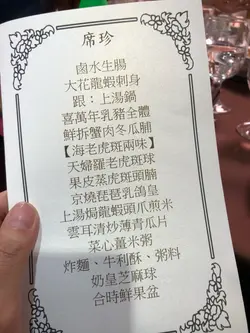 席珍
鹵水生腸
大花龍蝦刺身
跟：上湯鍋
喜萬年乳豬全體
鮮拆蟹肉冬瓜脯
【海老虎斑兩味】
天婦羅老虎斑球
果皮蒸虎斑頭腩
京燒琵琶乳鴿皇
上湯焗龍蝦頭爪煎米
雲耳清炒薄青瓜片
菜心薑米粥
炸麵、牛利酥、粥料
奶皇芝麻球
合時鮮果盆